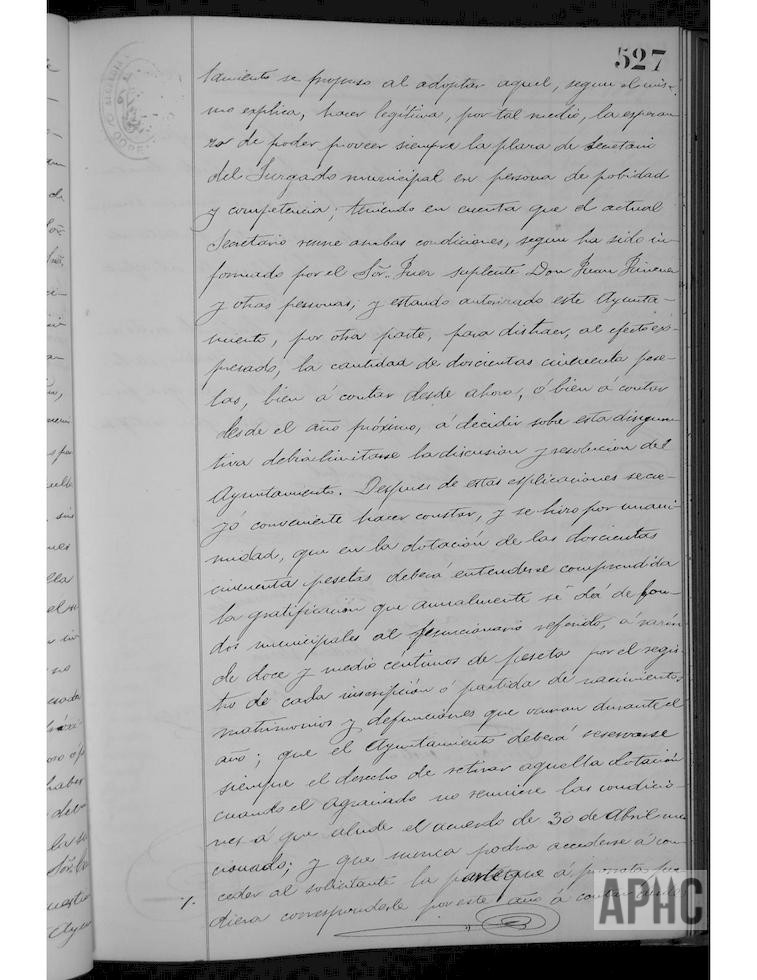 527
tamiento se propuso al adoptar aquel, segun el mis-
mo explica, hacer legítiva, por tal medio, la esperan
za de poder proveer siempre la plaza de Secretario
del Juzgado municipal en persona de probidad
y competencia; teniendo en cuenta que el actual
Secretario reune ambas condiciones, segun ha sido in-
formado por el Sor. Juez suplente Don Juan
y otras personas; y estando autorizado este Ayunta-
miento, por otra parte, para distraer, al efecto ex-
presado, la cantidad de doscientas cincuenta pese-
tas, bien á contar desde ahora, ó bien á contar
desde el año próximo, á decidir sobre esta disyun-
tiva debia limitarse la discusion y resolucion del
Ayuntamiento. Despues de estas esplicaciones se cre-
yó conveniente hacer constar, y se hizo por unani-
midad, que en la dotación de las doscientas
cincuenta pesetas deberá entenderse comprendida
la gratificación que anualmente se dá de fon-
dos municipales al funcionario referido, á razón
de doce y medio céntimos de peseta por el regis-
tro de cada inscripción ó partida de nacimientos
matrimonios y defunciones que ocurran durante el
año; que el Ayuntamiento deberá reservarse
siempre el derecho de retirar aquella dotación
cuando el agraciado no reuniere las condicio-
nes á que alude el acuerdo de 30 de Abril men
cionado; y que nunca podria accederse á con-
ceder al solicitante la parte que á prorrata pu-
diera corresponderle por este año á contar desde
APHC